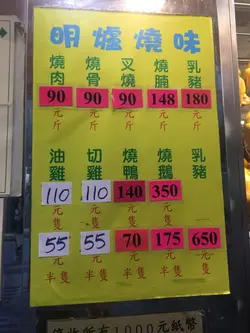 明爐燒味
燒肉 燒骨 叉燒 燒腩 乳豬
90 90 90 148 180
元 元 元 元 元
斤 斤 斤 斤 斤
油雞 切雞 燒鴨 燒鵝 乳豬
110 110 140 350
元 元 元 元
隻 隻 隻 隻
55 55 70 175 650
元 元 元 元 元
半隻 半隻 半隻 半隻 半隻
收所有1000元紙幣